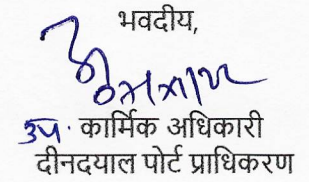 भवदीय,
उप. कार्मिक अधिकारी
दीनदयाल पोर्ट प्राधिकरण